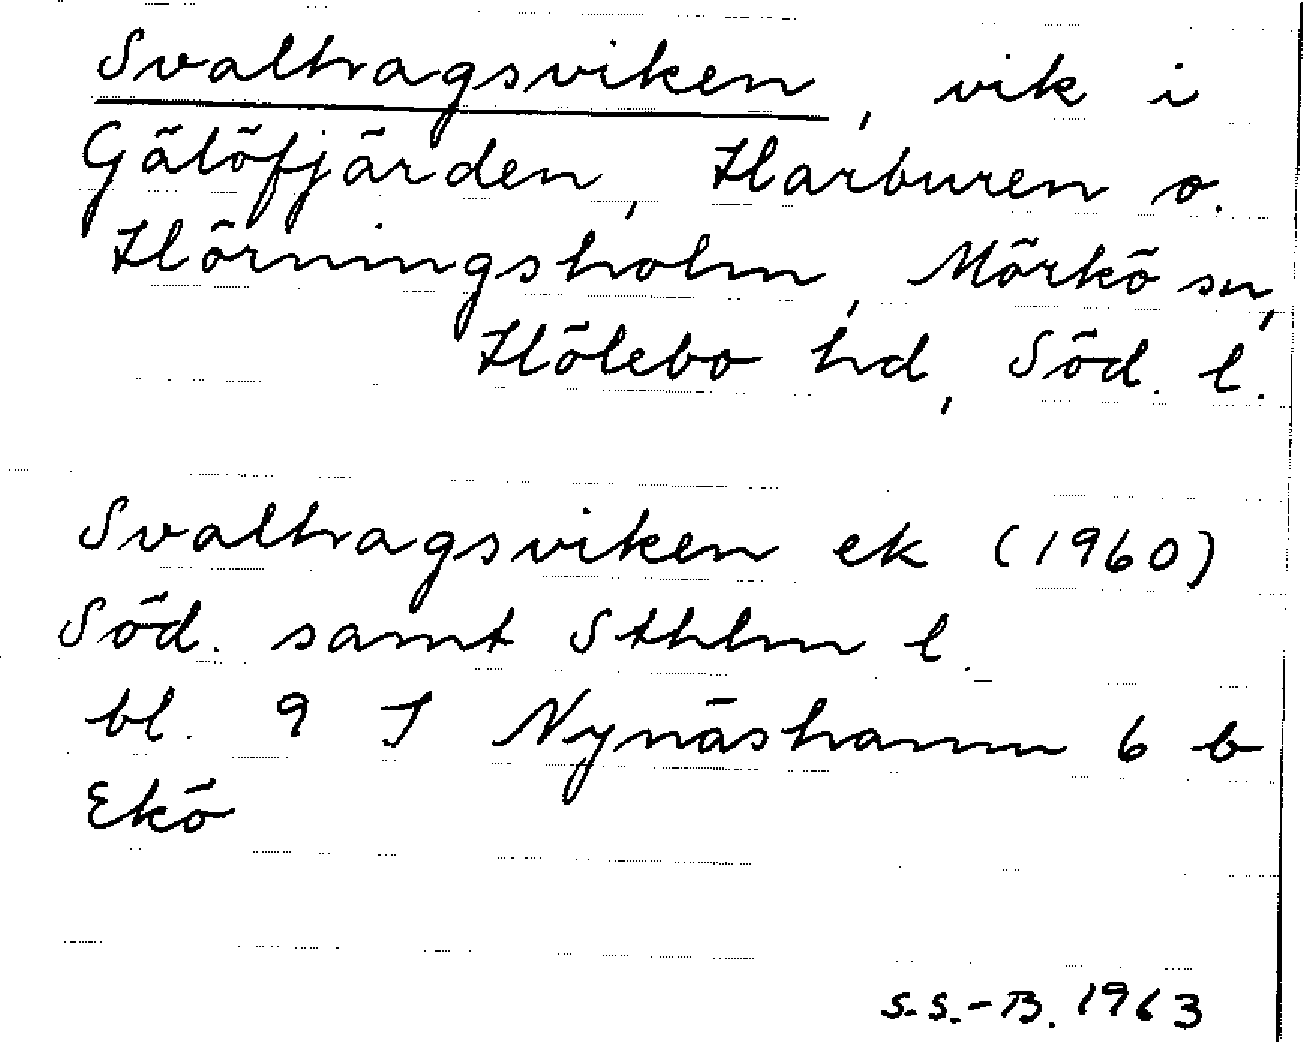 Svalhagsviken, vik i
Gälöfjärden, Harburen o.
Hörningsholm, Mörkö sn,
Hölebo hd, Söd. l.
Svalhagsviken ek (1960)
Söd. samt Sthlm l.
bl. 9 I Nynäshamn 6 b
Ekö
S.S.-B. 1963